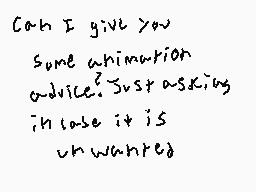 Can I give you
some animation
advice? Just asking
in case it is
unwanted